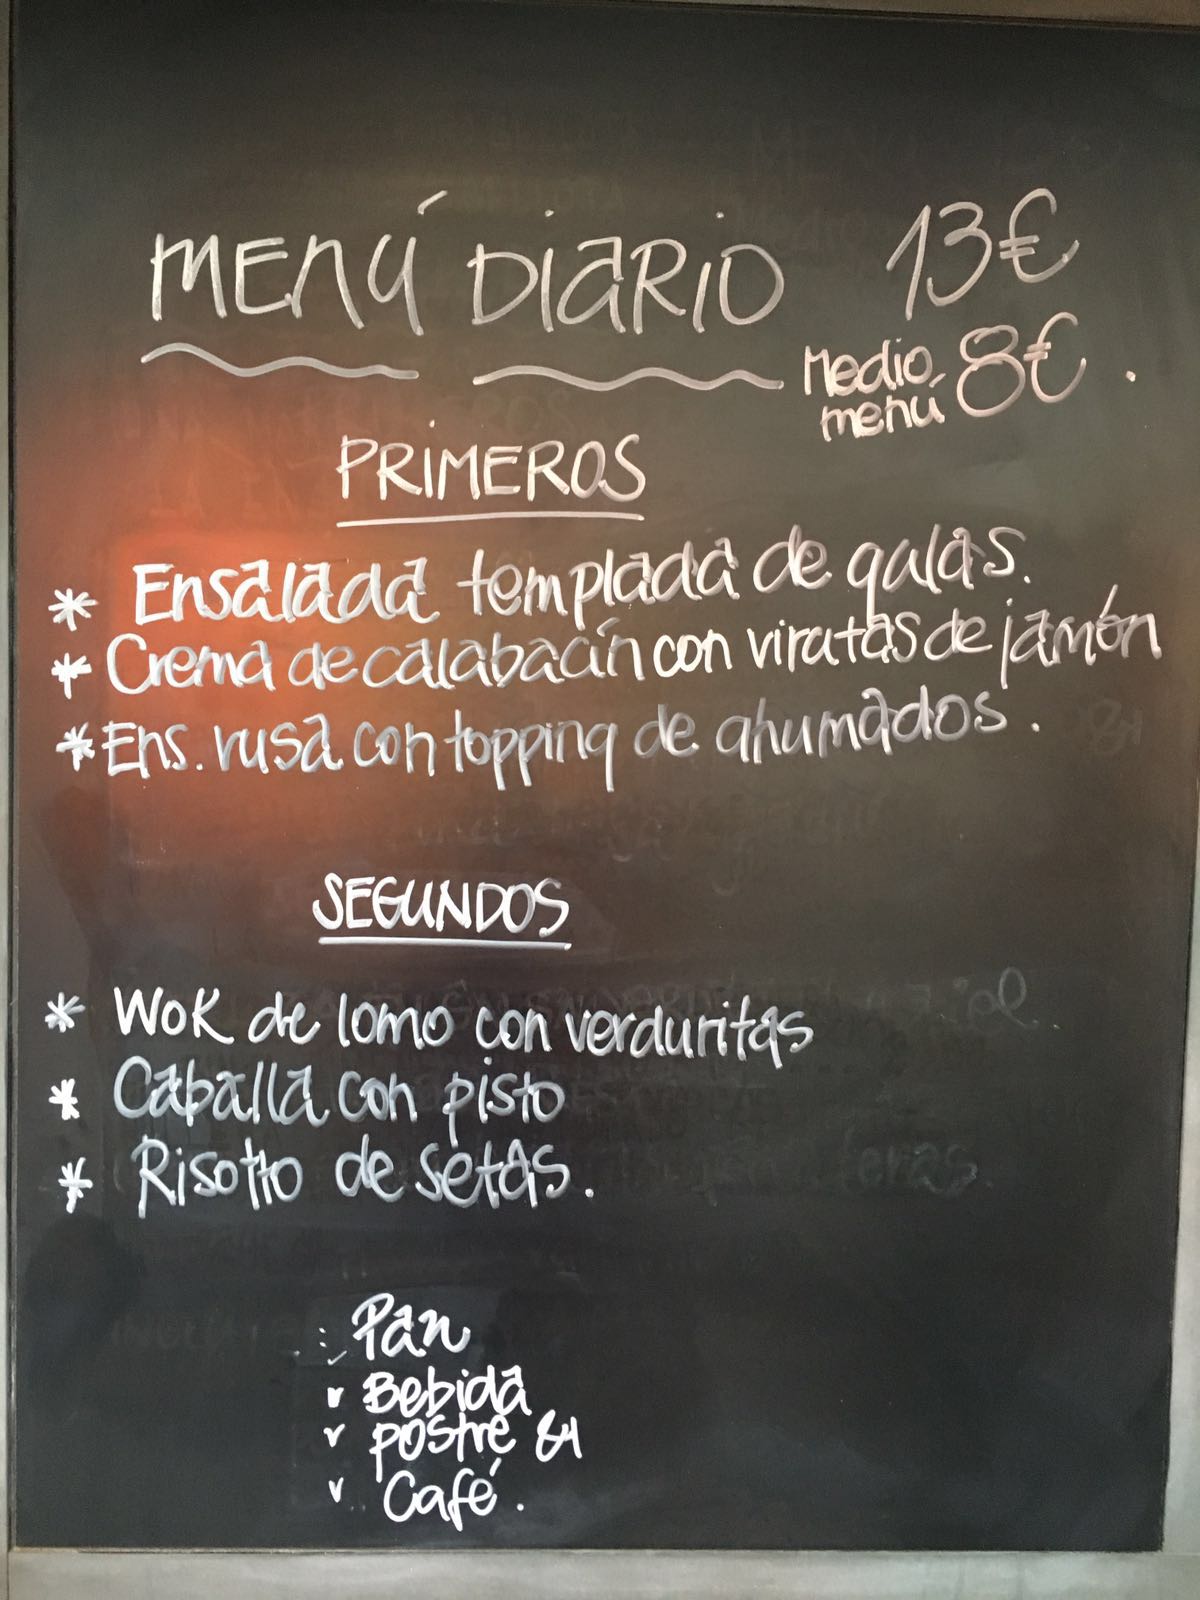 MENÚ DIARIO 13€
Medio menú 8€.
PRIMEROS
* Ensalada templada de gulas.
* Crema de calabacín con virutas de jamón
* Ens. rusa con topping de ahumados.
SEGUNDOS
* Wok de lomo con verduritas
* Caballa con pisto
* Risotto de setas.
Pan
v Bebida
v Postre &
v Café.